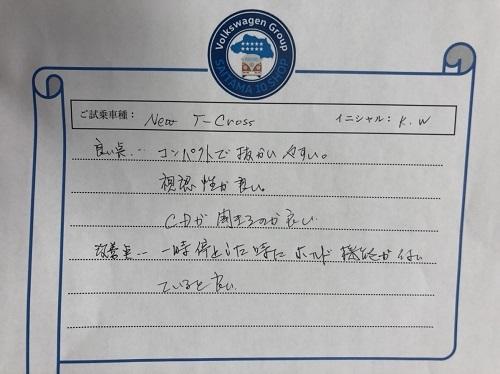 Volkswagen Group
SAITAMA 10 SHOP
ご試乗車種： New T-Cross イニシャル： K.W
良い点… コンパクトで扱かいやすい。
視認性が良い。
CDが聞きるのが良い
改善点… 一時停止した時にホールド機能が付い
ていると良い